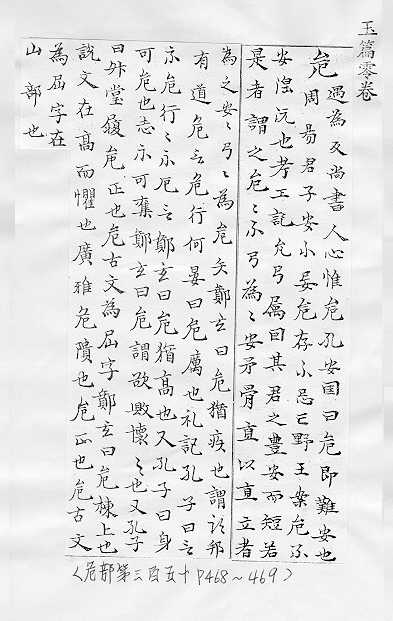 玉篇零卷
遇為反尚書人心惟危孔安国曰危即難安也
危周易君子安不妄危存不忘亡野王案危不
安湼沅也考工記允弓属曰其君之豊安而短若
是者謂之危〻不弓為〻安矛骨直以直立者
為之安〻弓〻為危矢鄭玄曰危猶疾也謂以邦
有道危言危行何晏曰危厲也礼記孔子曰言
示危行〻示危言鄭玄曰危猶高也又孔子曰身
可危也志示可棄鄭玄曰危謂欲敗壞〻也又孔子
曰升堂危正也危古文為屈字鄭玄曰危棟上也
說文在高而懼也廣雅危隤也危正也危古文
為屈字在
山部也
〈危部第三百五十 P468～469〉